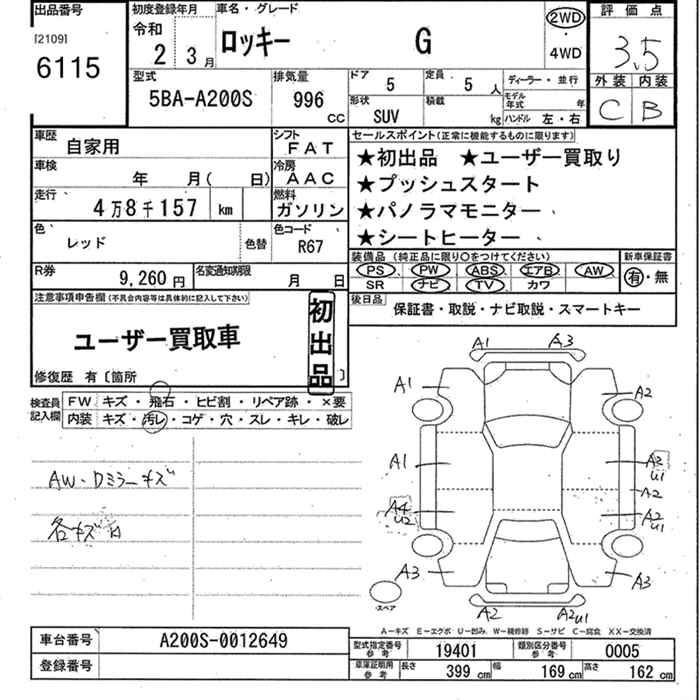 出品番号 初度登録年月 車名・グレード 評価点
[2109] 令和 ロッキー G 2WD 3.5
6115 2 3月 4WD
型式 排気量 ドア 5 定員 5人 ディーラー・並行 外装 内装
5BA-A200S 996 CC 形状 SUV 積載 kg モデル年式 年 C B
ハンドル 左・右
車歴 自家用 シフト FAT セールスポイント(正常に機能するものに限ります)
車検 年 月( 日) 冷房 AAC ★初出品 ★ユーザー買取り
走行 4万8千157 km 燃料 ガソリン ★プッシュスタート
★パノラマモニター
色 レッド 色替 色コード R67 ★シートヒーター
装備品(純正品に限り○をつけてください) 新車保証書
R券 9,260円 名変通知期限 月 日 PS PW ABS エアB AW 有・無
SR ナビ TV カワ
注意事項申告欄(不具合内容等は具体的に記入して下さい) 初出品 後日品 保証書・取説・ナビ取説・スマートキー
ユーザー買取車
修復歴 有〔箇所 〕
検査員記入欄 FW キズ・飛石・ヒビ割・リペア跡・×要
内装 キズ・汚レ・コゲ・穴・スレ・キレ・破レ
A1 A3
A1 A2
A1 A3 U1
AW・Dミラーキズ A2
各キズ A4 U2 A2 U1
A3 A3
スペア A2 A2 U1
A-キズ E-エクボ U-凹み W-補修跡 S-サビ C-腐食 XX-交換済
車台番号 A200S-0012649 型式指定番号 参考 19401 類別区分番号 参考 0005
登録番号 車庫証明用 参考 長さ 399 cm 幅 169 cm 高さ 162 cm